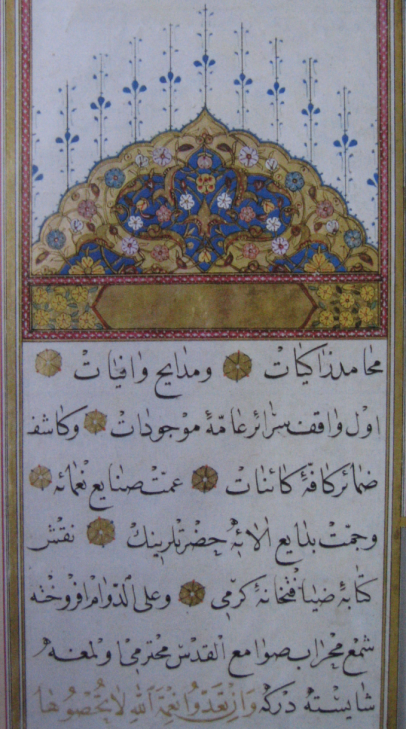 محامد زاكيات ومدايح وافيات
اول واقف سرائر عامّۀ موجودات وكاشف
ضمائر كافۀ كائنات عمّت صنايع نعمائه
وجمّت بدايع الائه حضرتلرينك نقش
كتابۀ ضيافتخانۀ كرمى وعلى الدّوام افروخته
شمع محراب صوامع القدس محترمى اولمغه
شايسته دركه وَاِنْ تَعُدّوا نِعْمَةَ اللّٰهِ لَا تُحْصُوهَا